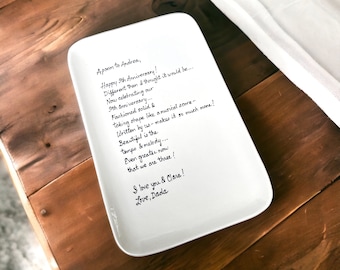 A poem to Andrea,
Happy 9th Anniversary!
Different than I thought it would be...
Now celebrating our
9th anniversary...
Fashioned solid &
Taking shape like a musical score -
Written by us - makes it so much more!
Beautiful is the
tempo & melody...
Even greater now
that we are three!
I love you & Clara!
Love, Dada